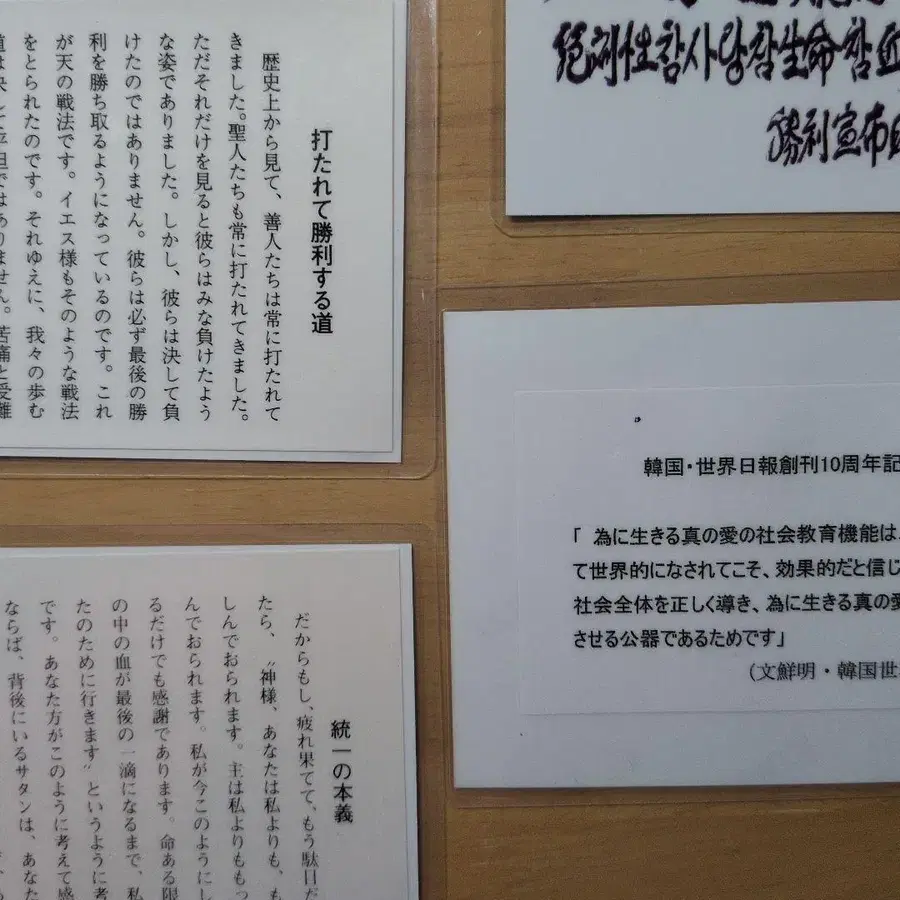 打たれて勝利する道
歴史上から見て、善人たちは常に打たれて
きました。聖人たちも常に打たれてきました。
ただそれだけを見ると彼らはみな負けたよう
な姿でありました。しかし、彼らは決して負
けたのではありません。彼らは必ず最後の勝
利を勝ち取るようになっているのです。これ
が天の戦法です。イエス様もそのような戦法
をとられたのです。それゆえに、我々の歩む
道は決して平坦ではありません。苦痛と受難
絶対性참사랑참生命참血
勝利宣布
韓国・世界日報創刊10周年記
「 為に生きる真の愛の社会教育機能は、
て世界的になされてこそ、効果的だと信じ
社会全体を正しく導き、為に生きる真の愛
させる公器であるためです」
(文鮮明・韓国世
統一の本義
だからもし、疲れ果てて、もう駄目だ
たら、〝神様、あなたは私よりも、も
しんでおられます。主は私よりももっ
んでおられます。私が今このようにし
るだけでも感謝であります。命ある限
の中の血が最後の一滴になるまで、私
たのために行きます〟というように考
です。あなた方がこのように考えて感
ならば、背後にいるサタンは、あなた